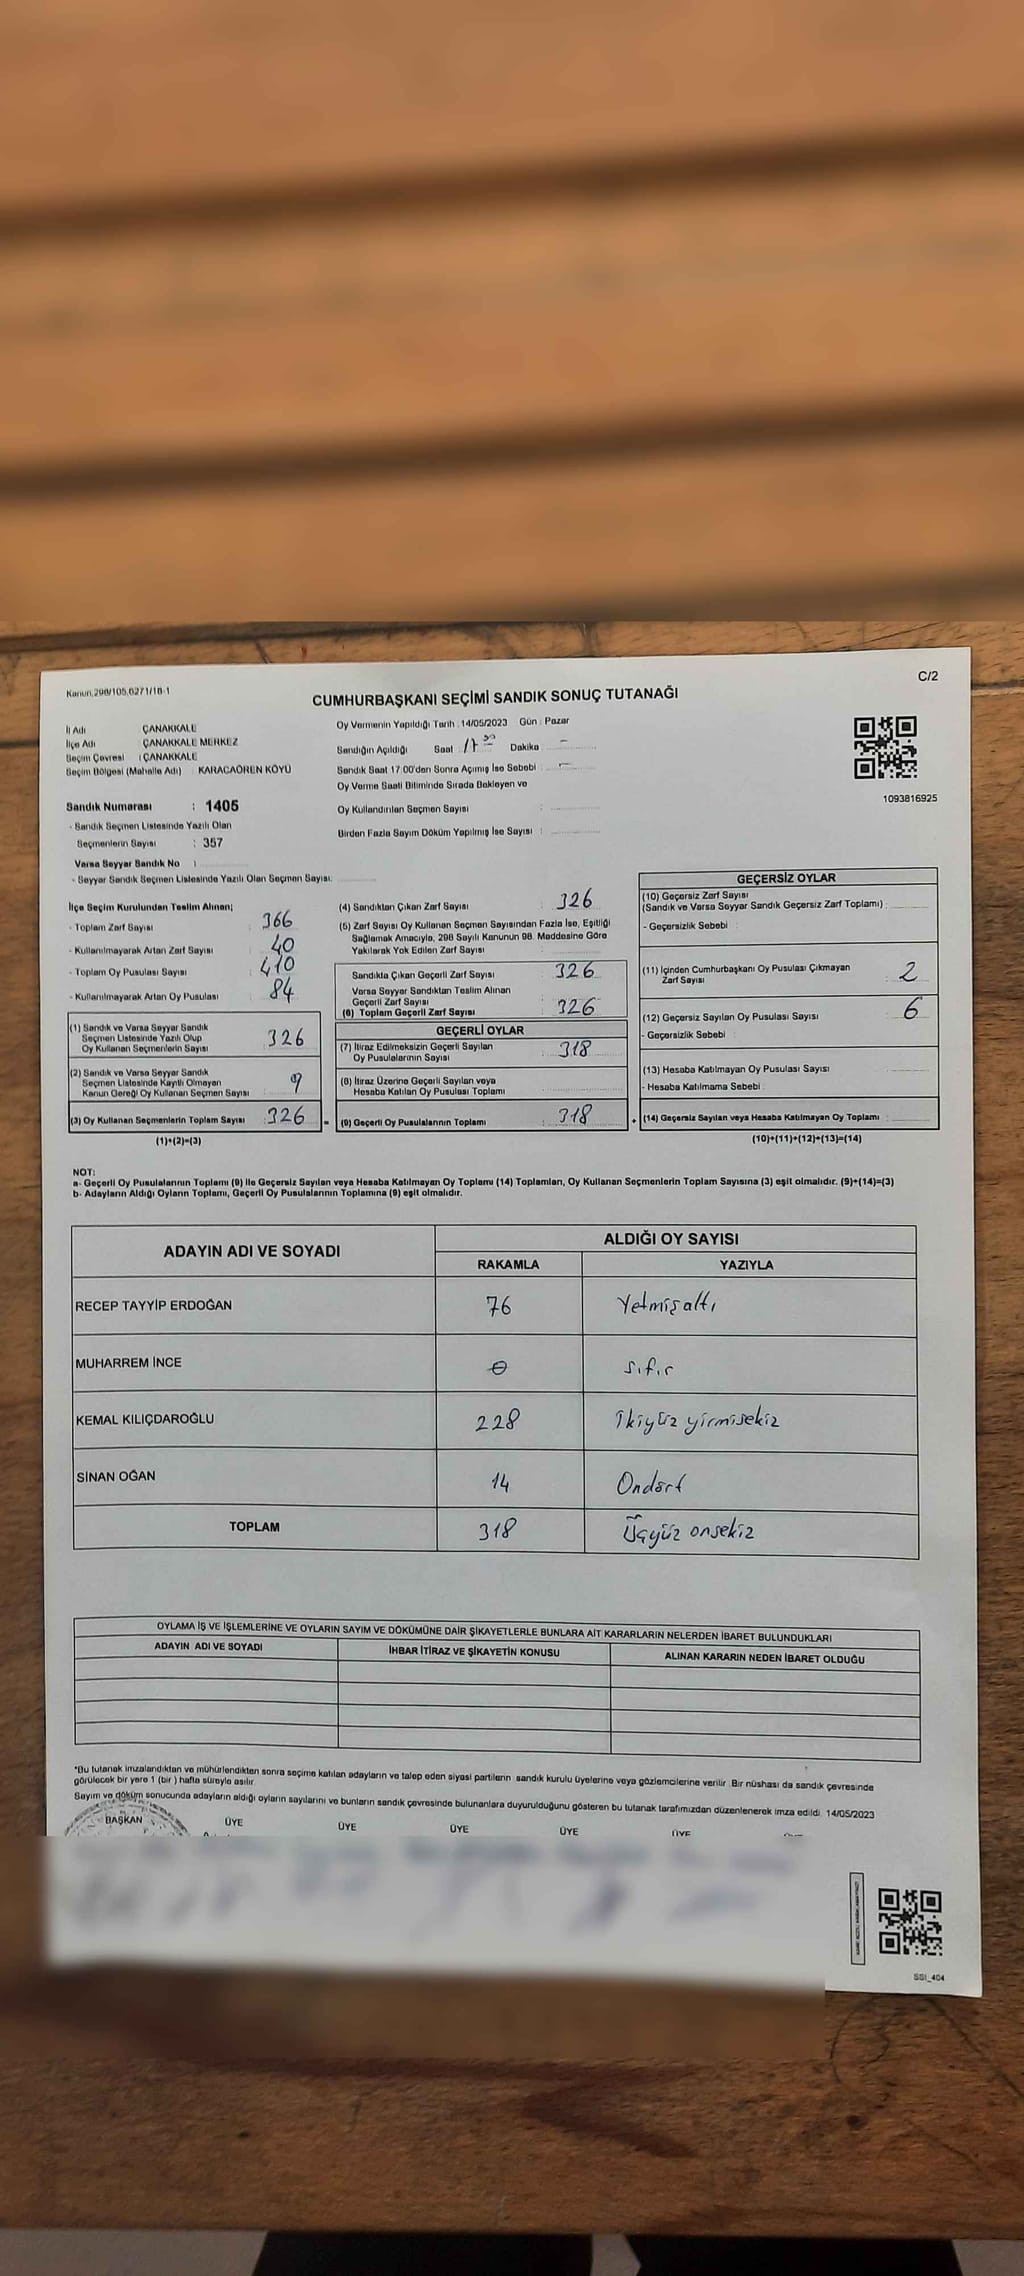 Kanun,298/105,6271/18-1
C/2
CUMHURBAŞKANI SEÇİMİ SANDIK SONUÇ TUTANAĞI
İl Adı : ÇANAKKALE
İlçe Adı : ÇANAKKALE MERKEZ
Seçim Çevresi : ÇANAKKALE
Seçim Bölgesi (Mahalle Adı) : KARACAÖREN KÖYÜ
Sandık Numarası : 1405
- Sandık Seçmen Listesinde Yazılı Olan
Seçmenlerin Sayısı : 357
Varsa Seyyar Sandık No :
- Seyyar Sandık Seçmen Listesinde Yazılı Olan Seçmen Sayısı:
Oy Vermenin Yapıldığı Tarih : 14/05/2023 Gün : Pazar
Sandığın Açıldığı Saat : 17 30 Dakika : -
Sandık Saat 17:00'den Sonra Açmış İse Sebebi : -
Oy Verme Saati Bitiminde Sırada Bekleyen ve
Oy Kullandırılan Seçmen Sayısı :
Birden Fazla Sayım Döküm Yapılmış İse Sayısı :
1093816925
İlçe Seçim Kurulundan Teslim Alınan;
- Toplam Zarf Sayısı : 366
- Kullanılmayarak Artan Zarf Sayısı : 40
- Toplam Oy Pusulası Sayısı : 410
- Kullanılmayarak Artan Oy Pusulası : 84
(1) Sandık ve Varsa Seyyar Sandık
Seçmen Listesinde Yazılı Olup
Oy Kullanan Seçmenlerin Sayısı : 326
(2) Sandık ve Varsa Seyyar Sandık
Seçmen Listesinde Kayıtlı Olmayan
Kanun Gereği Oy Kullanan Seçmen Sayısı :
(3) Oy Kullanan Seçmenlerin Toplam Sayısı : 326
(1)+(2)=(3)
(4) Sandıktan Çıkan Zarf Sayısı : 326
(5) Zarf Sayısı Oy Kullanan Seçmen Sayısından Fazla İse, Eşitliği
Sağlamak Amacıyla, 298 Sayılı Kanunun 98. Maddesine Göre
Yakılarak Yok Edilen Zarf Sayısı :
Sandıkta Çıkan Geçerli Zarf Sayısı : 326
Varsa Seyyar Sandıktan Teslim Alınan
Geçerli Zarf Sayısı :
(6) Toplam Geçerli Zarf Sayısı : 326
GEÇERLİ OYLAR
(7) İtiraz Edilmeksizin Geçerli Sayılan
Oy Pusulalarının Sayısı : 318
(8) İtiraz Üzerine Geçerli Sayılan veya
Hesaba Katılan Oy Pusulası Toplamı :
= (9) Geçerli Oy Pusulalarının Toplamı : 318
GEÇERSİZ OYLAR
(10) Geçersiz Zarf Sayısı
(Sandık ve Varsa Seyyar Sandık Geçersiz Zarf Toplamı) :
- Geçersizlik Sebebi :
(11) İçinden Cumhurbaşkanı Oy Pusulası Çıkmayan
Zarf Sayısı : 2
(12) Geçersiz Sayılan Oy Pusulası Sayısı : 6
- Geçersizlik Sebebi :
(13) Hesaba Katılmayan Oy Pusulası Sayısı :
- Hesaba Katılmama Sebebi :
+ (14) Geçersiz Sayılan veya Hesaba Katılmayan Oy Toplamı :
(10)+(11)+(12)+(13)=(14)
NOT:
a- Geçerli Oy Pusulalarının Toplamı (9) ile Geçersiz Sayılan veya Hesaba Katılmayan Oy Toplamı (14) Toplamları, Oy Kullanan Seçmenlerin Toplam Sayısına (3) eşit olmalıdır. (9)+(14)=(3)
b- Adayların Aldığı Oyların Toplamı, Geçerli Oy Pusulalarının Toplamına (9) eşit olmalıdır.
ADAYIN ADI VE SOYADI
ALDIĞI OY SAYISI
RAKAMLA YAZIYLA
RECEP TAYYİP ERDOĞAN 76 Yetmişaltı
MUHARREM İNCE 0 sıfır
KEMAL KILIÇDAROĞLU 228 İkiyüz yirmisekiz
SİNAN OĞAN 14 Ondört
TOPLAM 318 Üçyüz onsekiz
OYLAMA İŞ VE İŞLEMLERİNE VE OYLARIN SAYIM VE DÖKÜMÜNE DAİR ŞİKAYETLERLE BUNLARA AİT KARARLARIN NELERDEN İBARET BULUNDUKLARI
ADAYIN ADI VE SOYADI İHBAR İTİRAZ VE ŞİKAYETİN KONUSU ALINAN KARARIN NEDEN İBARET OLDUĞU
*Bu tutanak imzalandıktan ve mühürlendikten sonra seçime katılan adayların ve talep eden siyasi partilerin sandık kurulu üyelerine veya gözlemcilerine verilir. Bir nüshası da sandık çevresinde
görülecek bir yere 1 (bir ) hafta süreyle asılır.
Sayım ve döküm sonucunda adayların aldığı oyların sayılarını ve bunların sandık çevresinde bulunanlara duyurulduğunu gösteren bu tutanak tarafımızdan düzenlenerek imza edildi. 14/05/2023
BAŞKAN ÜYE ÜYE ÜYE ÜYE ÜYE
SSI_404